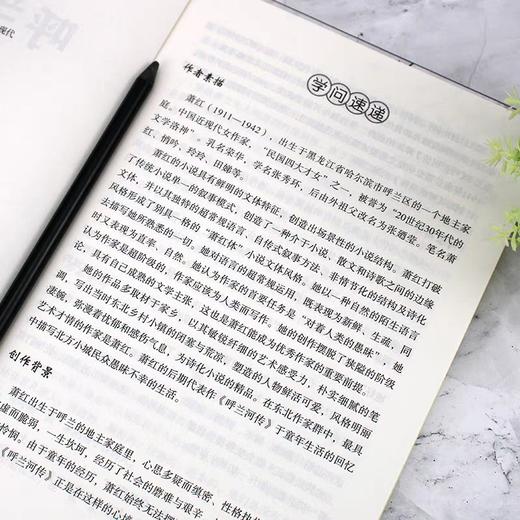 现代
学问速递
作者素描
萧红（1911—1942），出生于黑龙江省哈尔滨市呼兰区的一个地主家
庭。中国近现代女作家，“民国四大才女”之一，被誉为“20世纪30年代的
文学洛神”。乳名荣华，学名张秀环，后由外祖父改名为张廼莹。笔名萧
红、悄吟、玲玲、田娣等。
萧红的小说具有鲜明的文体特征，创造出场景性的小说结构。萧红打破
了传统小说单一的叙事模式，创造了一种介于小说、散文和诗歌之间的边缘
文体，并以其独特的超常规语言、自传式叙事方法、非情节化的结构及诗化
风格形成了别具一格的“萧红体”小说文体风格。她以一种自然的陌生语言
去描写她所熟悉的一切。她对语言的超常规运用，既表现为新鲜、生疏，同
时又表现为直率、自然。她认为作家的首要任务是“对着人类的愚昧”，她
认为作家是超阶级的，作家应该为人类而写作。她的创作摆脱了狭隘的阶级
论，具有自己成熟的文学主张，这也是萧红能成为优秀作家的重要前提。
她的作品多取材于家乡，以其敏锐纤细的艺术感受力，朴实细腻的笔
调，写出当时东北乡村小镇的闭塞与荒凉，塑造的人物鲜活可爱，风格明丽
凄婉，弥漫着忧郁和感伤气息，为诗化小说的精品。在东北作家群中，最具
艺术才情的作家是萧红。萧红的后期代表作《呼兰河传》于童年生活的回忆
中描写北方小城民众愚昧不幸的生活。
创作背景
萧红出生于呼兰的地主家庭里，心思多疑而缜密，性格执
虚而脆弱，一生坎坷，经历了社会的磨难与艰辛，
怜悯。由于童年的经历，萧红始终无法摆
《呼兰河传》正是在这样的心境